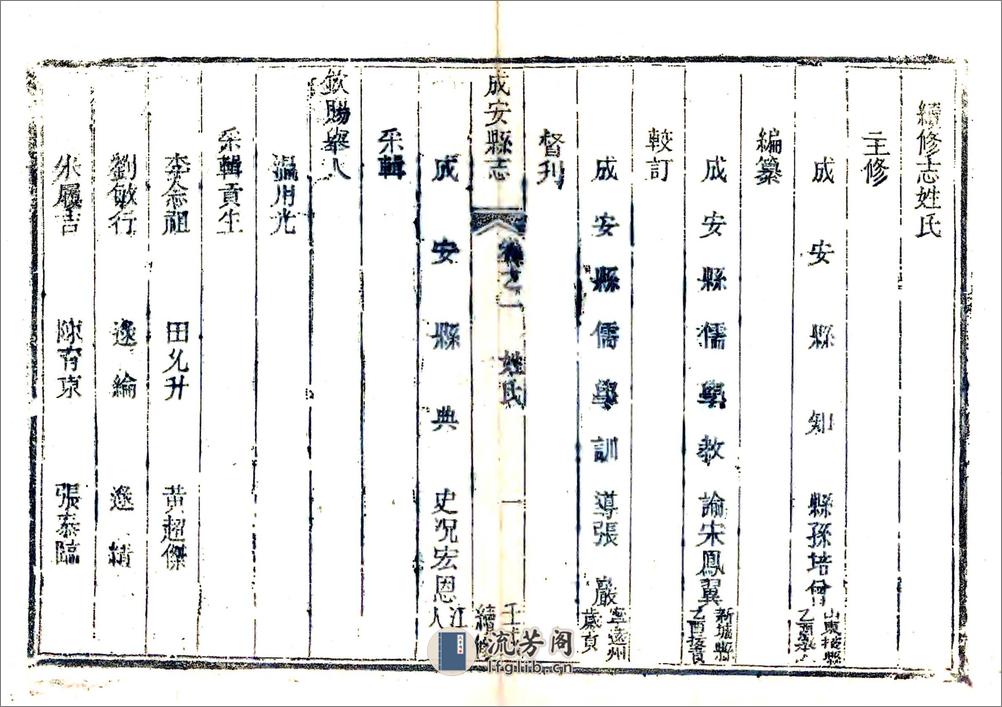 續修志姓氏
主修
成安縣知縣孫培曾 山東掖縣 乙酉舉人
編纂
成安縣儒學教諭宋鳳翼 新城縣 乙酉拔貢
較訂
成安縣儒學訓導張巖 寧遠州 歲貢
督刊
成安縣志 卷之一 姓氏 一 續修
成安縣典史況宏恩 江 人
采輯
欽賜舉人
溫用光
采輯貢生
李念祖 田允升 黃超傑
劉敏行 逯綸 逯績
朱履吉 陳育東 張泰臨
流芳阁
lfglib.cn